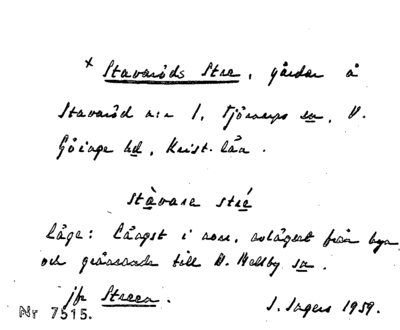 × Stavaröds Stre, gårdar å
Stavaröd n:r 1, Tjörnarps sn, V.
Göinge hd, Krist. län.
stàvara stré
Läge: Längst i norr, avlägset från byn
och gränsande till N. Mellby sn.
jfr Streen.
J. Sagers 1959.
Nr 7515.